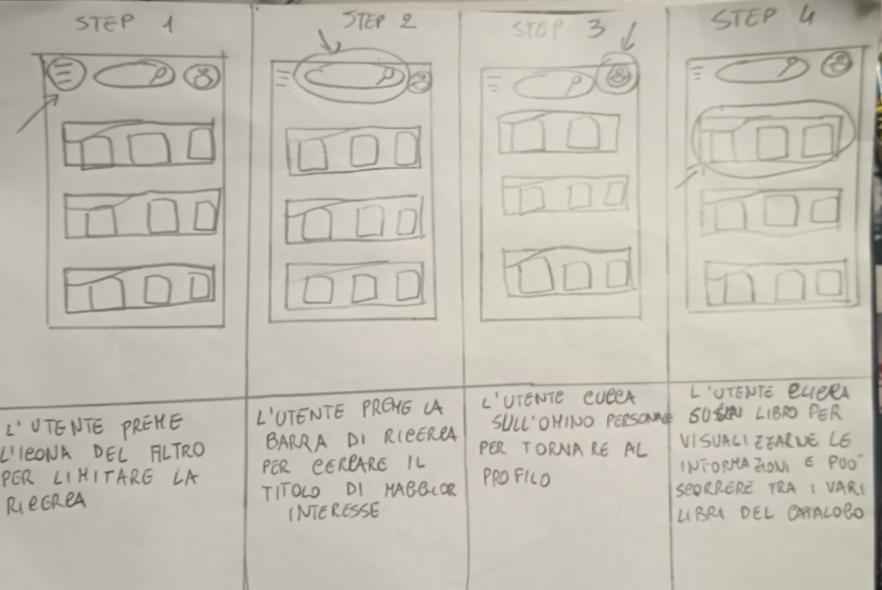 STEP 1
L'UTENTE PREME
L'ICONA DEL FILTRO
PER LIMITARE LA
RICERCA
STEP 2
L'UTENTE PREME LA
BARRA DI RICERCA
PER CERCARE IL
TITOLO DI MAGGIOR
INTERESSE
STEP 3
L'UTENTE CLICCA
SULL'OMINO PERSONALE
PER TORNARE AL
PROFILO
STEP 4
L'UTENTE CLICCA
LIBRO PER
VISUALIZZARNE LE
INFORMAZIONI E PUO'
SCORRERE TRA I VARI
LIBRI DEL CATALOGO